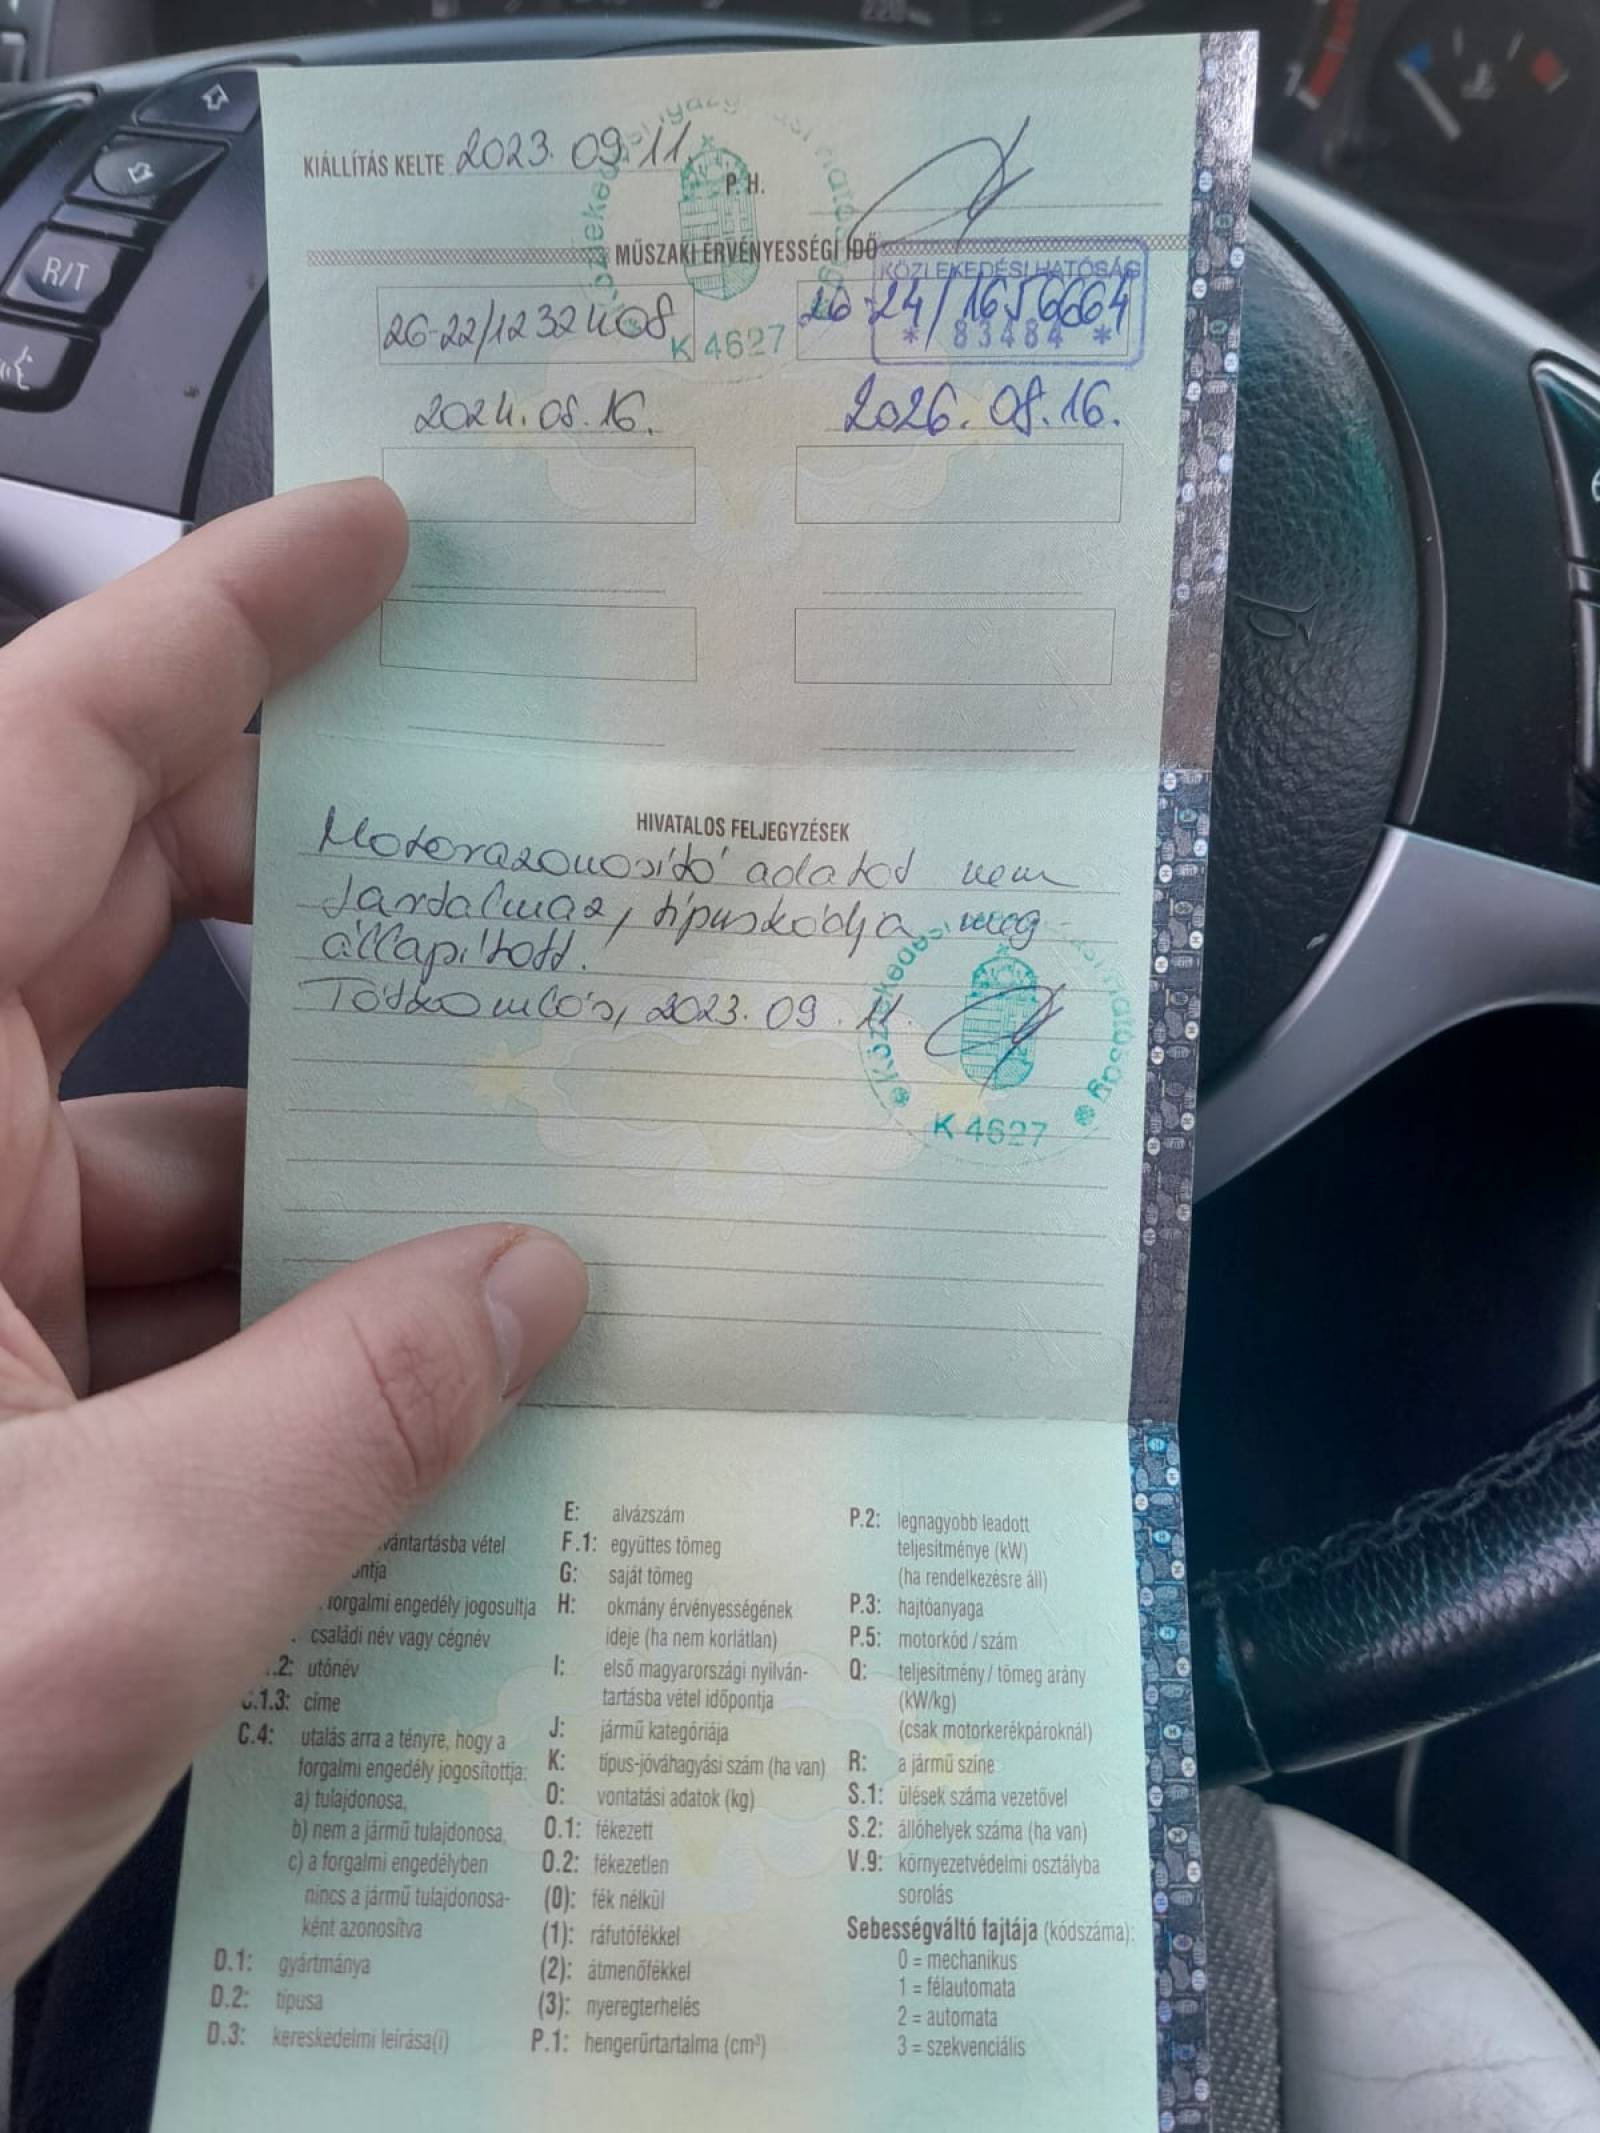 220
R/T
KIÁLLÍTÁS KELTE 2023. 09. 11.
P. H.
MŰSZAKI ÉRVÉNYESSÉGI IDŐ
KÖZLEKEDÉSI HATÓSÁG
26-22/1232408
26-24/1656664
K 4627
* 83484 *
2024. 08. 16.
2026. 08. 16.
HIVATALOS FELJEGYZÉSEK
Motorazonosító adatot nem
tartalmaz, típuskódja meg
állapított.
Tótkomlós, 2023. 09. 11.
Közlekedési
K 4627
vántartásba vétel
forgalmi engedély jogosultja
családi név vagy cégnév
.2: utónév
C.1.3: címe
C.4: utalás arra a tényre, hogy a
forgalmi engedély jogosítottja:
a) tulajdonosa,
b) nem a jármű tulajdonosa,
c) a forgalmi engedélyben
nincs a jármű tulajdonosa-
ként azonosítva
D.1: gyártmánya
D.2: típusa
D.3: kereskedelmi leírása(i)
E: alvázszám
F.1: együttes tömeg
G: saját tömeg
H: okmány érvényességének
ideje (ha nem korlátlan)
I: első magyarországi nyilván-
tartásba vétel időpontja
J: jármű kategóriája
K: típus-jóváhagyási szám (ha van)
O: vontatási adatok (kg)
O.1: fékezett
O.2: fékezetlen
(0): fék nélkül
(1): ráfutófékkel
(2): átmenőfékkel
(3): nyeregterhelés
P.1: hengerűrtartalma (cm³)
P.2: legnagyobb leadott
teljesítménye (kW)
(ha rendelkezésre áll)
P.3: hajtóanyaga
P.5: motorkód / szám
Q: teljesítmény / tömeg arány
(kW/kg)
(csak motorkerékpároknál)
R: a jármű színe
S.1: ülések száma vezetővel
S.2: állóhelyek száma (ha van)
V.9: környezetvédelmi osztályba
sorolás
Sebességváltó fajtája (kódszáma):
0 = mechanikus
1 = félautomata
2 = automata
3 = szekvenciális